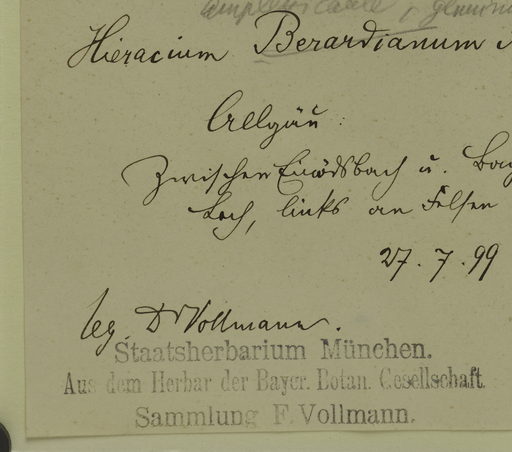 Hieracium Berardianum
Allgäu:
Zwischen Einödsbach u.
Loch, links an Felsen
27. 7. 99
leg. Dr Vollmann.
Staatsherbarium München.
Aus dem Herbar der Bayer. Botan. Gesellschaft
Sammlung F. Vollmann.